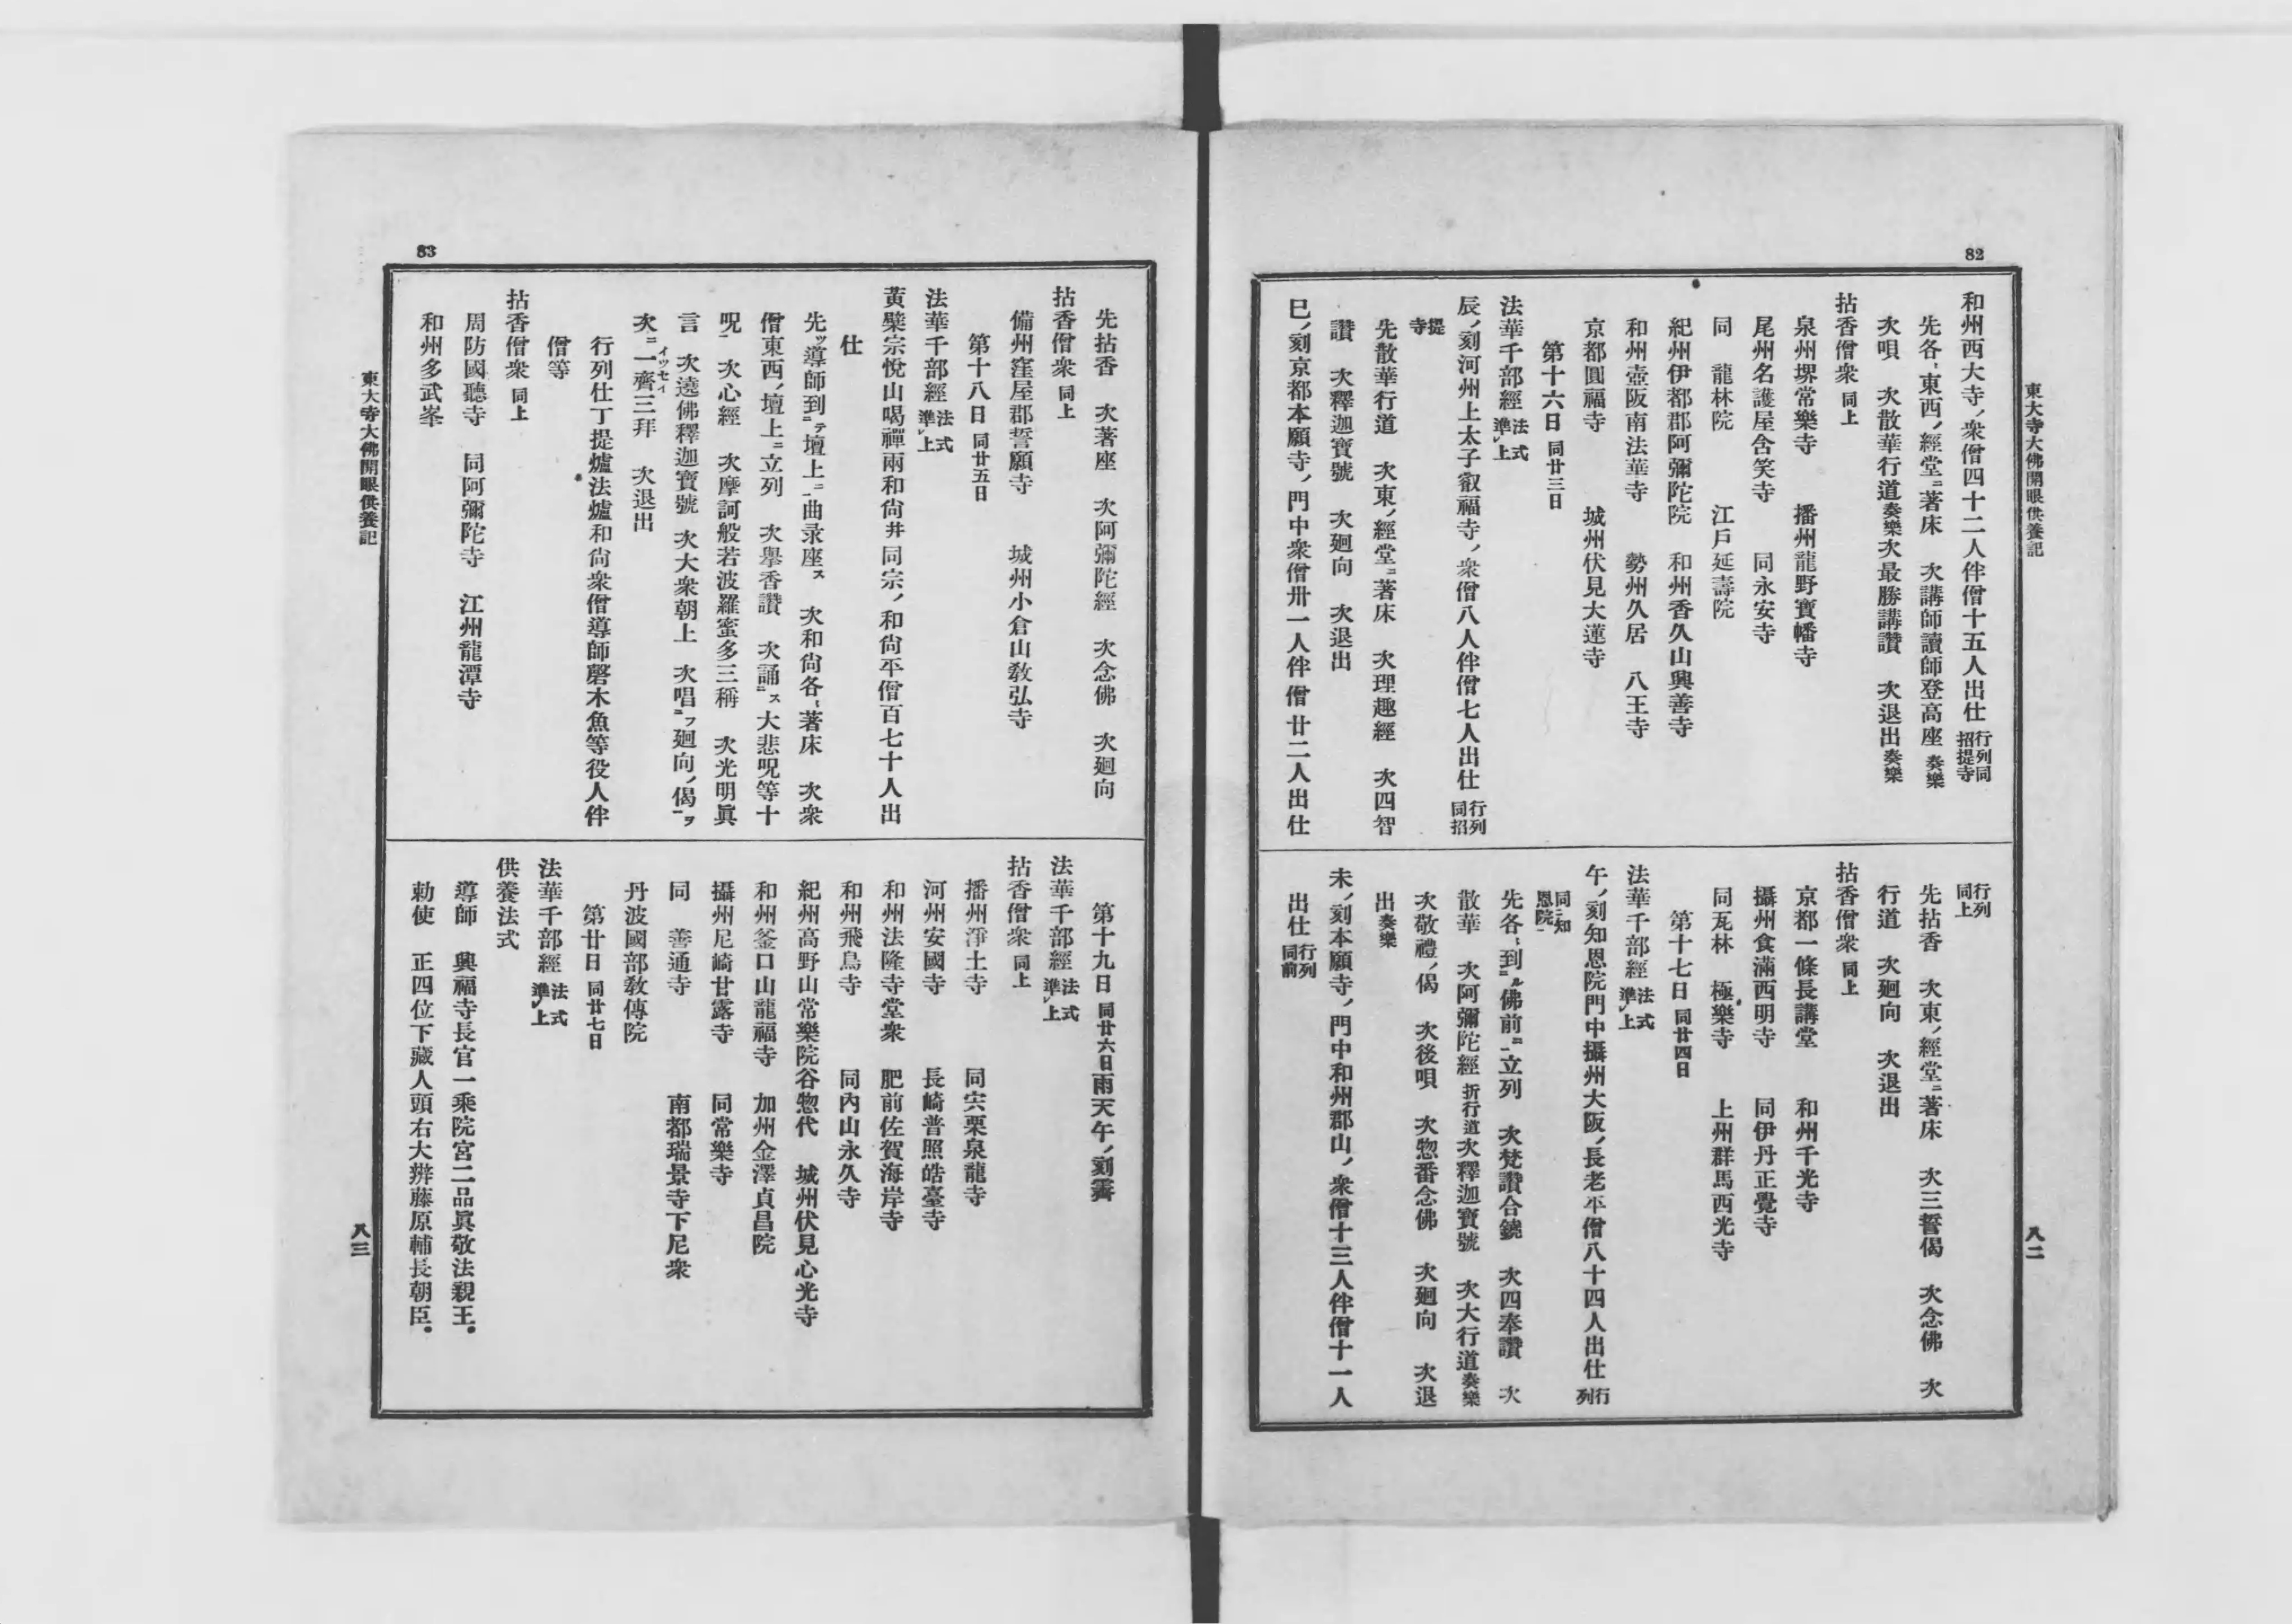 82
東大寺大佛開眼供養記
八二
和州西大寺ノ衆僧四十二人伴僧十五人出仕 行列同招提寺
先各〻東西ノ經堂ニ著床　次講師讀師登高座 奏樂
次唄　次散華行道奏樂次最勝講讚　次退出奏樂
拈香僧衆 同上
泉州堺常樂寺　播州龍野寶幡寺
尾州名護屋含笑寺　同永安寺
同　龍林院　江戶延壽院
紀州伊都郡阿彌陀院　和州香久山興善寺
和州壺阪南法華寺　勢州久居　八王寺
京都圓福寺　城州伏見大蓮寺
第十六日 同廿三日
法華千部經 法式準ㇾ上
辰ノ刻河州上太子叡福寺ノ衆僧八人伴僧七人出仕 行列同招
提寺
先散華行道　次東ノ經堂ニ著床　次理趣經　次四智
讚　次釋迦寶號　次廻向　次退出
巳ノ刻京都本願寺ノ門中衆僧卅一人伴僧廿二人出仕
行列同上
先拈香　次東ノ經堂ニ著床　次三誓偈　次念佛　次
行道　次廻向　次退出
拈香僧衆 同上
京都一條長講堂　和州千光寺
攝州食滿西明寺　同伊丹正覺寺
同瓦林　極樂寺　上州群馬西光寺
第十七日 同廿四日
法華千部經 法式準ㇾ上
午ノ刻知恩院門中攝州大阪ノ長老平僧八十四人出仕 行列
同ニ知恩院一
先各〻到ニル佛前ニ一立列　次梵讚合鐃　次四奉讚　次
散華　次阿彌陀經 折行道次釋迦寶號　次大行道奏樂
次敬禮ノ偈　次後唄　次惣番念佛　次廻向　次退
出奏樂
未ノ刻本願寺ノ門中和州郡山ノ衆僧十三人伴僧十一人
出仕 行列同前
83
東大寺大佛開眼供養記
八三
先拈香　次著座　次阿彌陀經　次念佛　次廻向
拈香僧衆 同上
備州窪屋郡誓願寺　城州小倉山敎弘寺
第十八日 同廿五日
法華千部經 法式準ㇾ上
黃檗宗悅山喝禪兩和尙幷同宗ノ和尙平僧百七十人出
仕
先ッ導師到ニテ壇上ニ一曲录座ス　次和尙各〻著床　次衆
僧東西ノ壇上ニ立列　次擧香讚　次誦ニス大悲呪等十
呪一　次心經　次摩訶般若波羅蜜多三稱　次光明眞
言　次遶佛釋迦寶號　次大衆朝上　次唱ニフ廻向ノ偈一ヲ
次ニ一齊イッセイ三拜　次退出
行列仕丁提爐法爐和尙衆僧導師磬木魚等役人伴
僧等
拈香僧衆 同上
周防國聽寺　同阿彌陀寺　江州龍潭寺
和州多武峯
第十九日 同廿六日雨天午ノ刻霽
法華千部經 法式準ㇾ上
拈香僧衆 同上
播州淨土寺　同宍栗泉龍寺
河州安國寺　長崎普照皓臺寺
和州法隆寺堂衆　肥前佐賀海岸寺
和州飛鳥寺　同內山永久寺
紀州高野山常樂院谷惣代　城州伏見心光寺
和州釜口山龍福寺　加州金澤貞昌院
攝州尼崎甘露寺　同常樂寺
同　善通寺　南都瑞景寺下尼衆
丹波國部敎傳院
第廿日 同廿七日
法華千部經 法式準ㇾ上
供養法式
導師　興福寺長官一乘院宮二品眞敬法親王。
勅使　正四位下藏人頭右大辨藤原輔長朝臣。